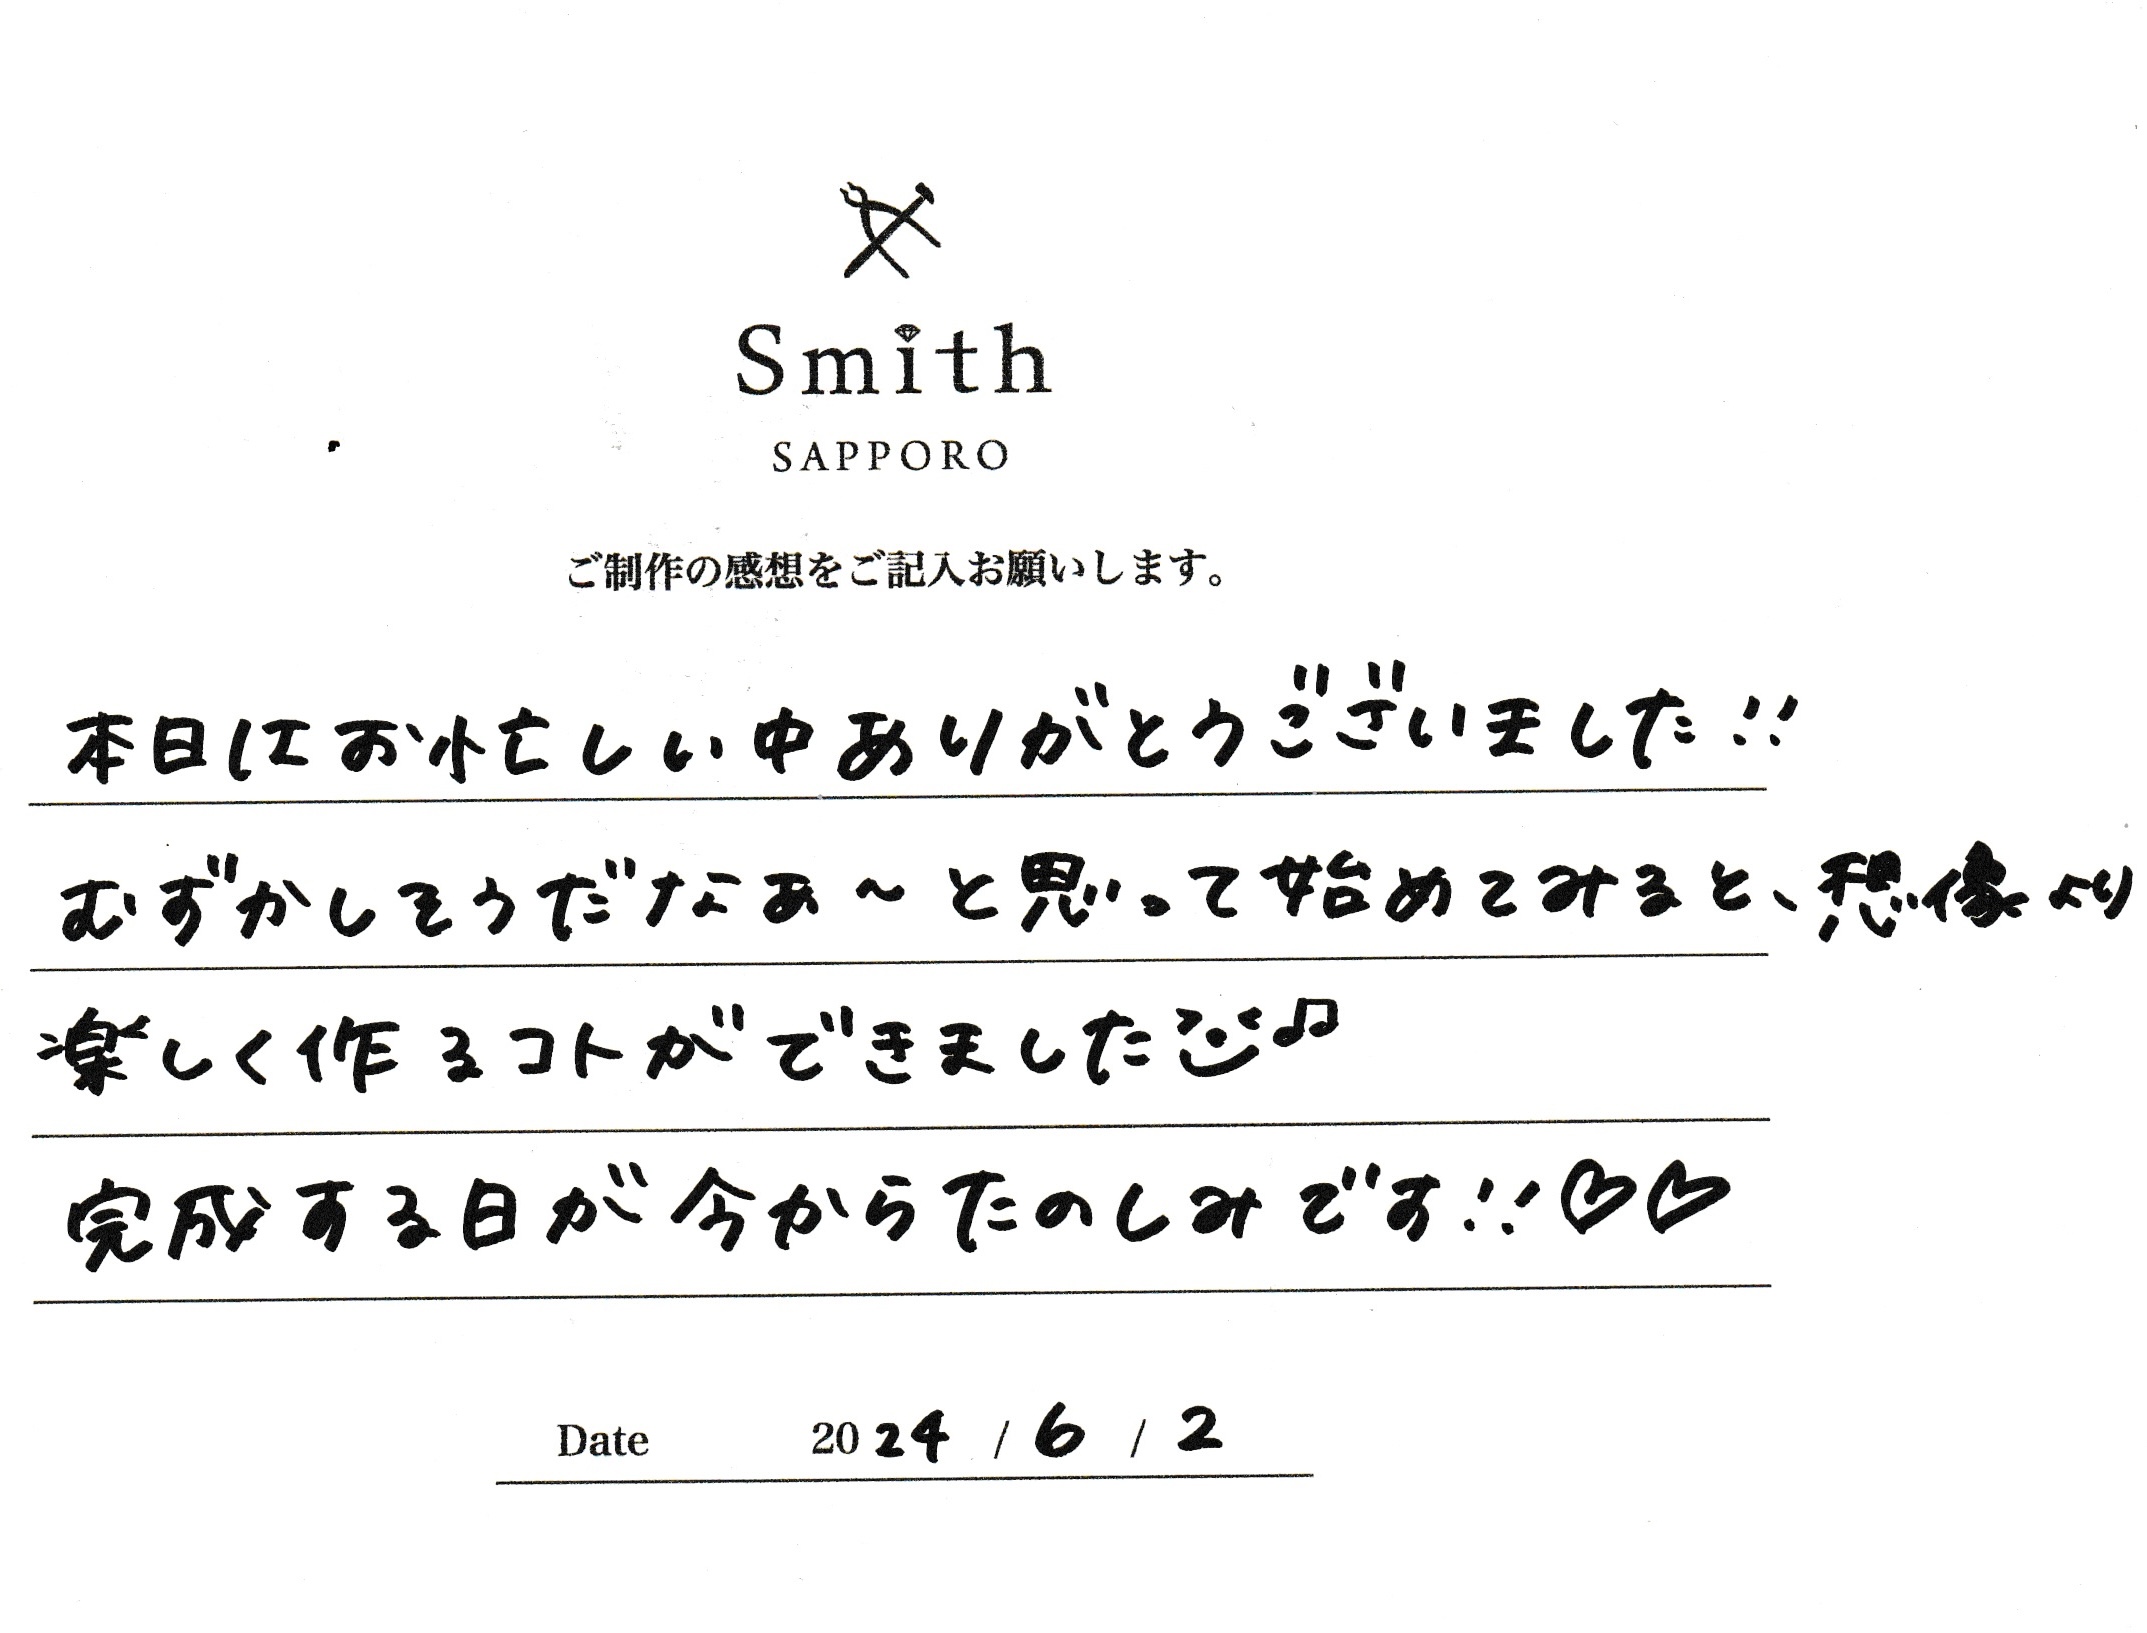 Smith
SAPPORO
ご制作の感想をご記入お願いします。
本日はお忙しい中ありがとうございました!!
むずかしそうだなぁ〜と思って始めてみると、想像より
楽しく作るコトができました♫
完成する日が今からたのしみです!!♡♡
Date 2024 / 6 / 2